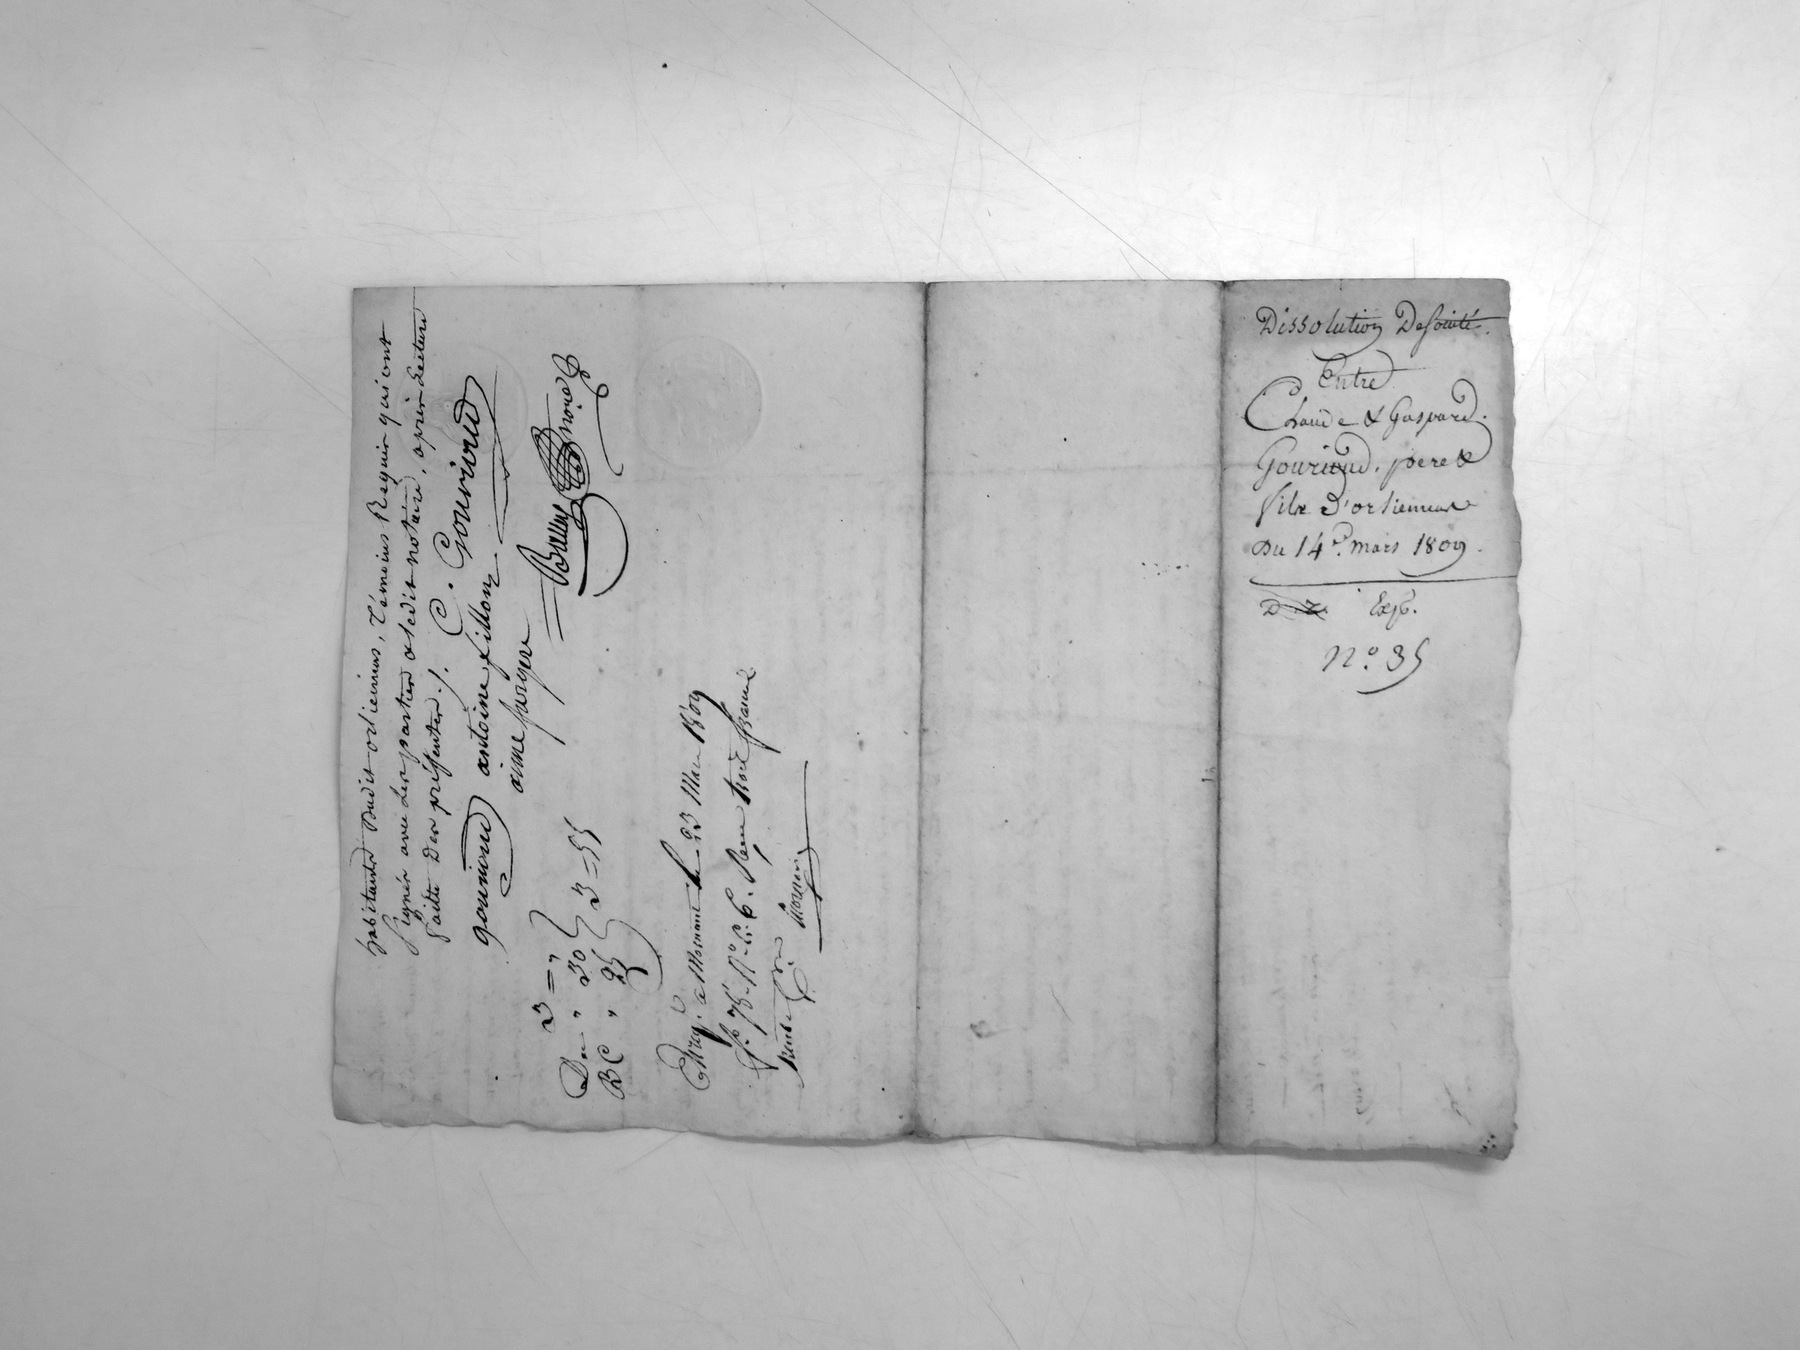 habitants Dudit orliennas, Témoins Requis qui ont
Signés avec Les parties & ledit notaire, après Lecture
faite Des présentes ./. C. Gourioud
gourioud antoine fillon
aime farge
Ballay Noire
3 = "
Dme " 30
BC " 25 } 3 = 55
Enreg. à Mornant le 23 Mars 1809
f° 75 R° C. 6. Reçu trois francs
trente C.
Dissolution De Société.
Entre
Claude & Gaspard
Gourioud, pere &
fils d'orliennas
Du 14 e. mars 1809.
Exp.
N.° 35